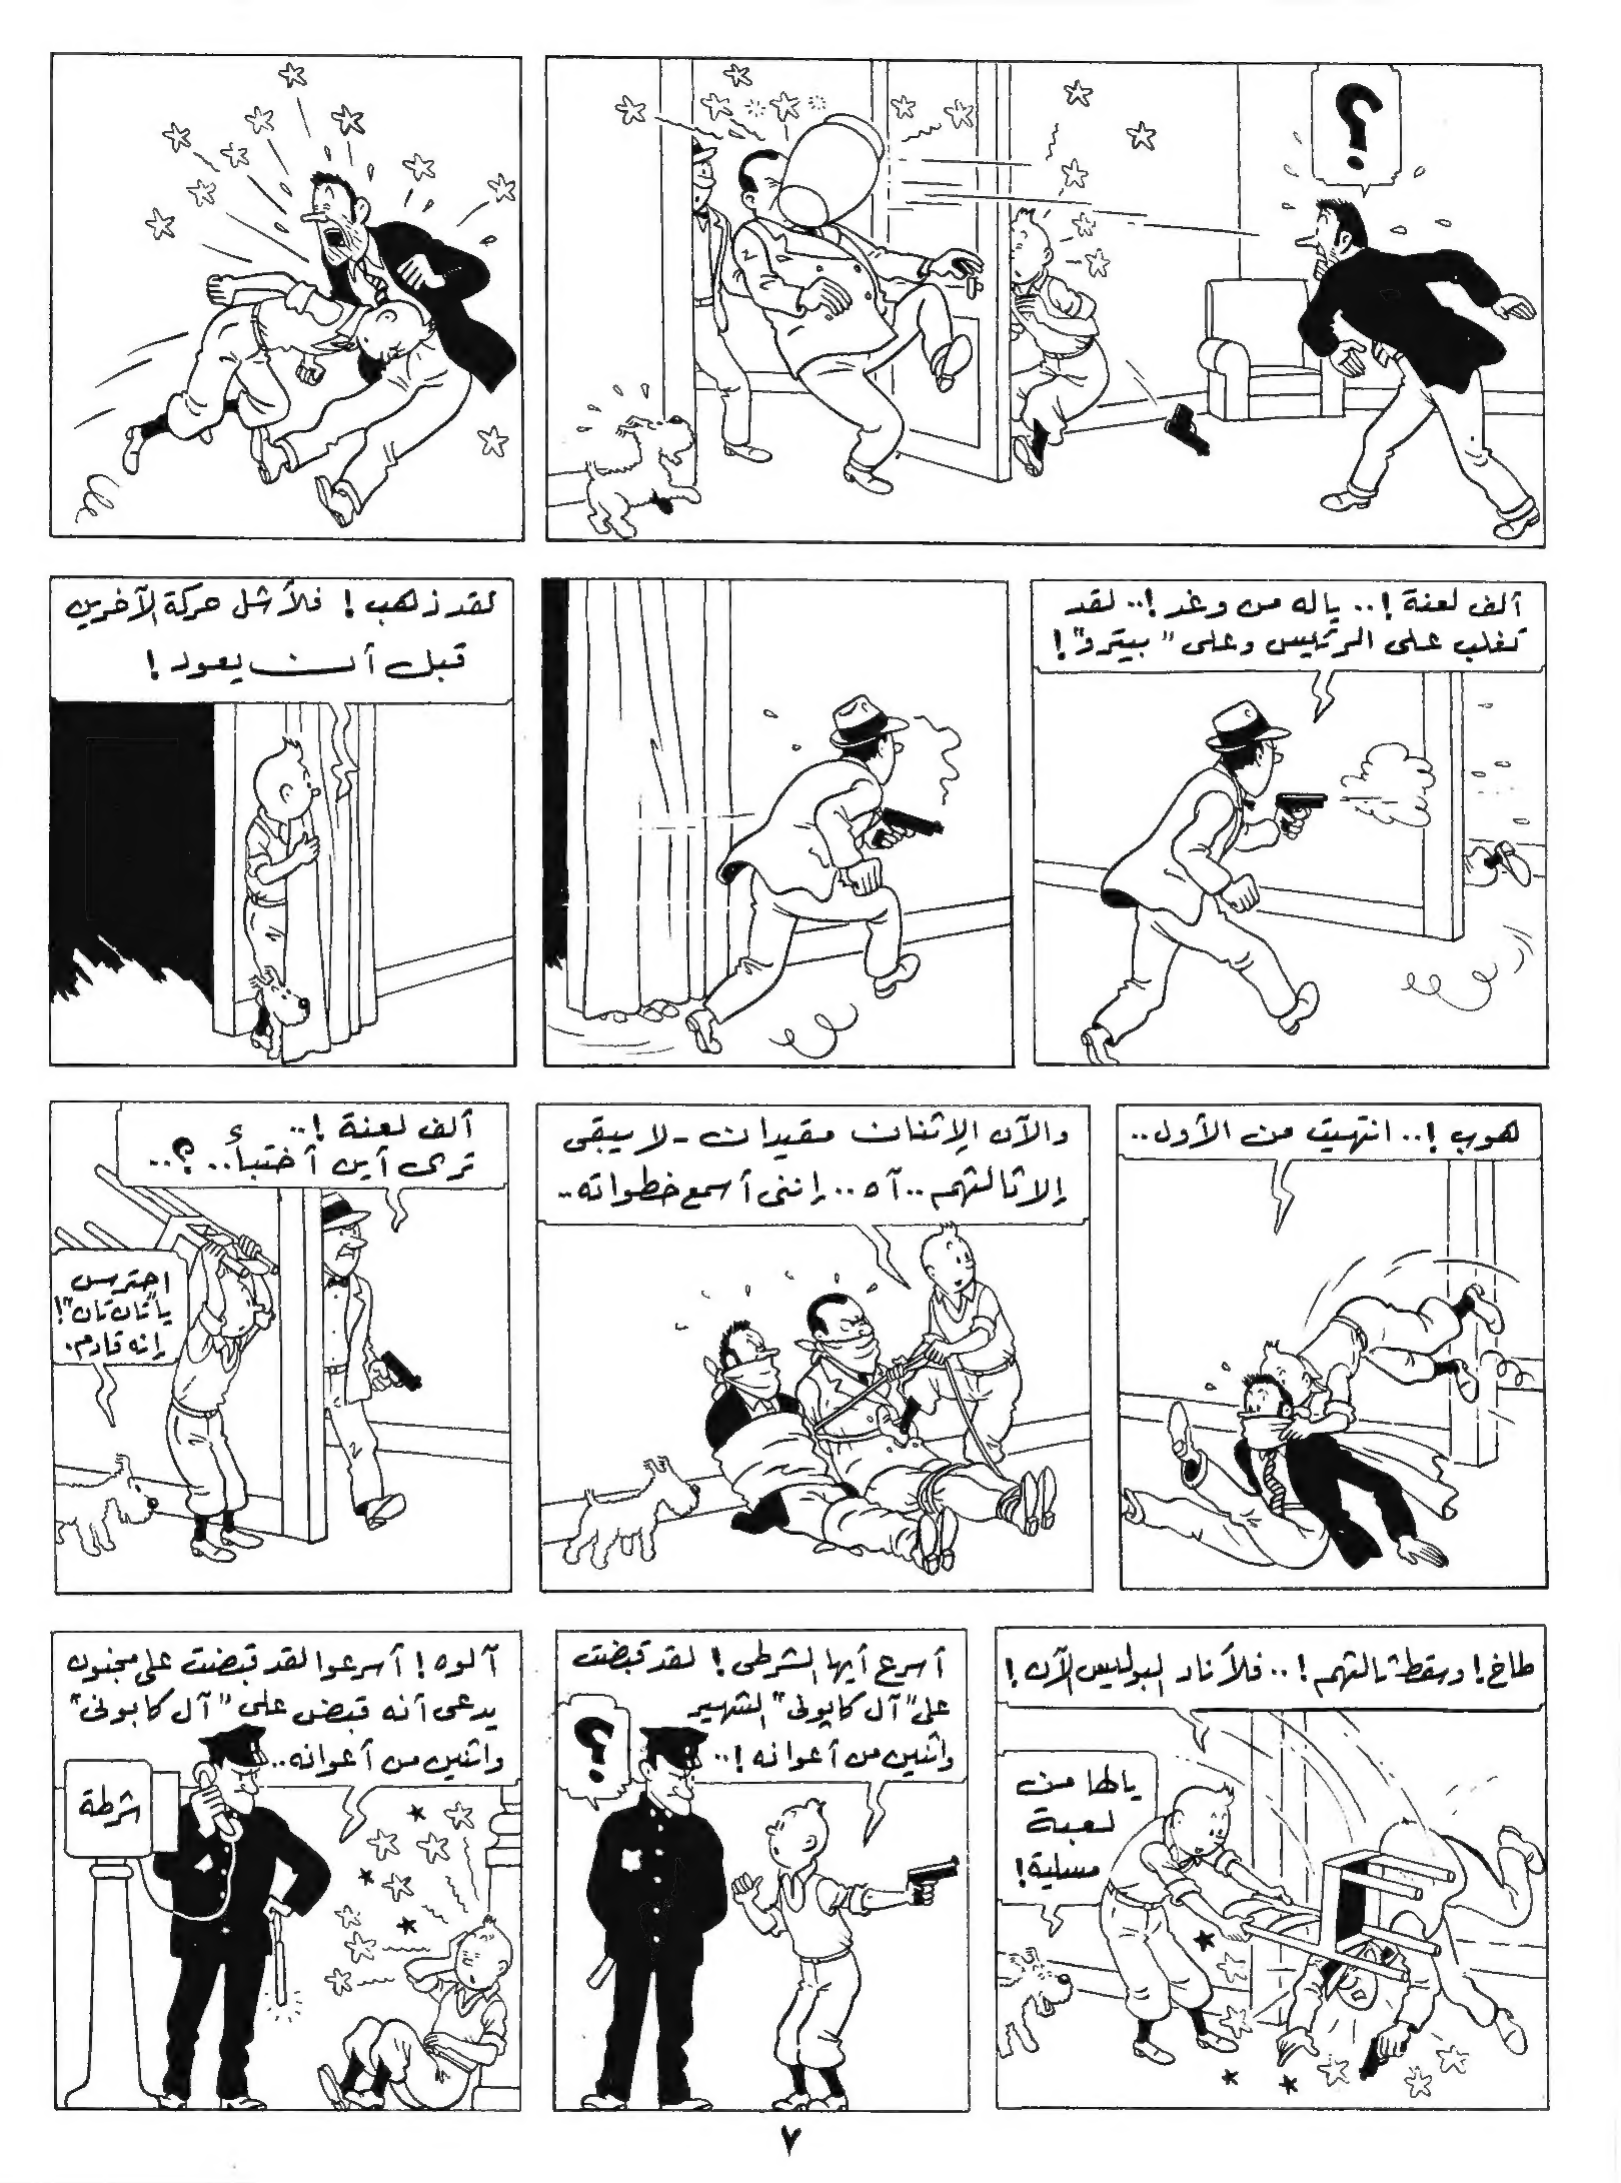 ؟
ألف لعنة !.. ياله من وغد !.. لقد
تغلب على الرئيس وعلى " بيترو" !
لقد ذهب ! فلأشل حركة الآخرين
قبل أن يعود !
هوب !.. انتهيت من الأول..
والآن الإثنان مقيدان - لا يبقى
إلا ثالثهم.. آه.. إننى أسمع خطواته..
ألف لعنة !..
ترى أين أختبأ.. ؟..
احترس
يا "تان تان" !
إنه قادم.
طاخ ! وسقط ثالثهم !.. فلأناد البوليس الآن !
يالها من
لعبة
مسلية !
أسرع أيها الشرطى ! لقد قبضت
على "آل كابونى" الشهير
واثنين من أعوانه !..
؟
آلوه ! أسرعوا لقد قبضت على مجنون
يدعى أنه قبض على "آل كابونى"
واثنين من أعوانه..
شرطة
٧